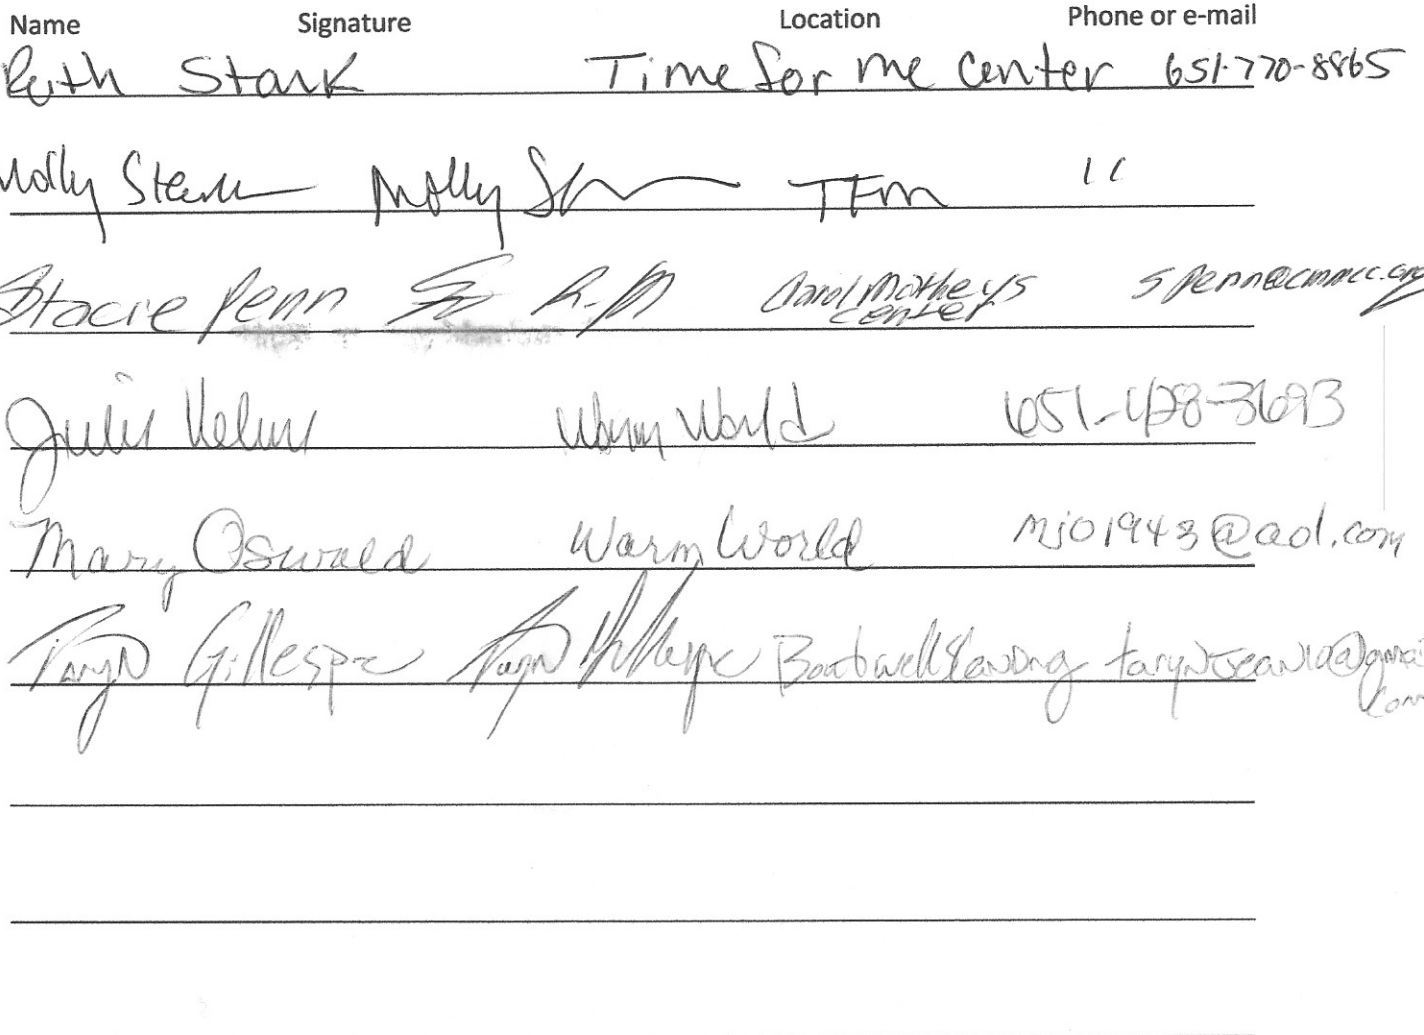 Name Signature Location Phone or e-mail
Ruth Stark Time for me center 651-770-8865
Molly Stark Molly TFM "
Stacie Penn Carol Matheys center spenn@cmmcc.org
Julie Warm World
Mary Oswald Warm World mjo1943@aol.com
Taryn Gillespie Taryn Gillespie